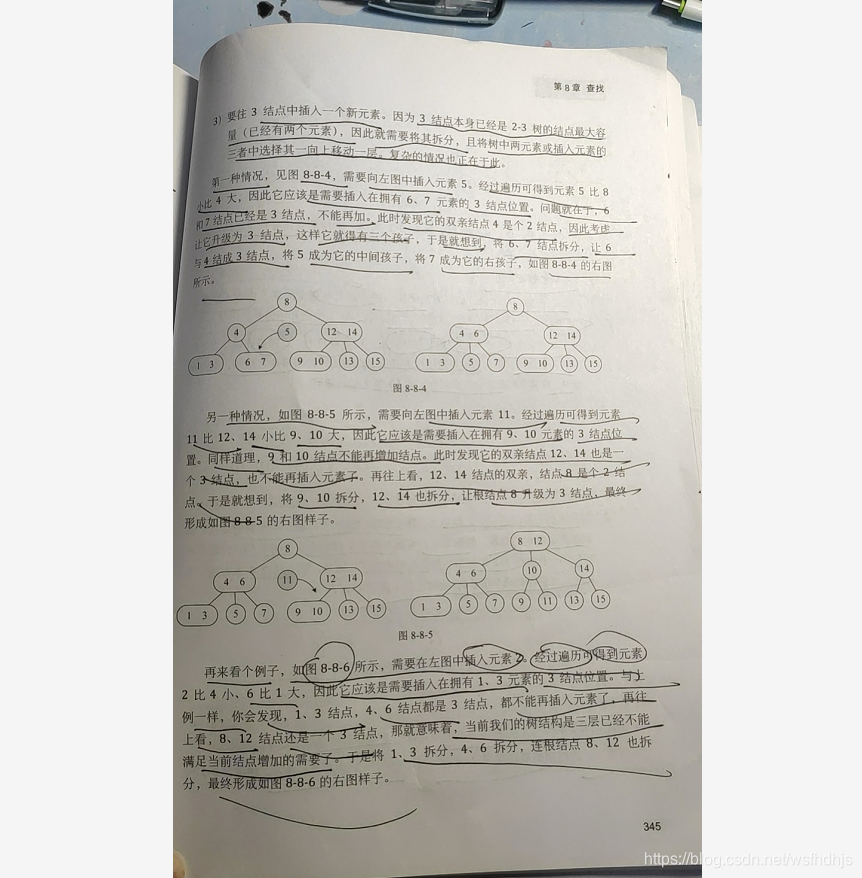 第 8 章 查找
3) 要往 3 结点中插入一个新元素。因为 3 结点本身已经是 2-3 树的结点最大容
量(已经有两个元素),因此就需要将其拆分,且将树中两元素或插入元素的
三者中选择其一向上移动一层。复杂的情况也正在于此。
第一种情况,见图 8-8-4,需要向左图中插入元素 5。经过遍历可得到元素 5 比 8
小比 4 大,因此它应该是需要插入在拥有 6、7 元素的 3 结点位置。问题就在于,6
和 7 结点已经是 3 结点,不能再加。此时发现它的双亲结点 4 是个 2 结点,因此考虑
让它升级为 3 结点,这样它就得有三个孩子,于是就想到,将 6、7 结点拆分,让 6
与 4 结成 3 结点,将 5 成为它的中间孩子,将 7 成为它的右孩子,如图 8-8-4 的右图
所示。
8 8
4 5 12 14 4 6 12 14
1 3 6 7 9 10 13 15 1 3 5 7 9 10 13 15
图 8-8-4
另一种情况,如图 8-8-5 所示,需要向左图中插入元素 11。经过遍历可得到元素
11 比 12、14 小比 9、10 大,因此它应该是需要插入在拥有 9、10 元素的 3 结点位
置。同样道理,9 和 10 结点不能再增加结点。此时发现它的双亲结点 12、14 也是一
个 3 结点,也不能再插入元素了。再往上看,12、14 结点的双亲,结点 8 是个 2 结
点。于是就想到,将 9、10 拆分,12、14 也拆分,让根结点 8 升级为 3 结点,最终
形成如图 8-8-5 的右图样子。
8 8 12
4 6 11 12 14 4 6 10 14
1 3 5 7 9 10 13 15 1 3 5 7 9 11 13 15
图 8-8-5
再来看个例子,如图 8-8-6 所示,需要在左图中插入元素 2。经过遍历可得到元素
2 比 4 小、6 比 1 大,因此它应该是需要插入在拥有 1、3 元素的 3 结点位置。与上
例一样,你会发现,1、3 结点,4、6 结点都是 3 结点,都不能再插入元素了,再往
上看,8、12 结点还是一个 3 结点,那就意味着,当前我们的树结构是三层已经不能
满足当前结点增加的需要了。于是将 1、3 拆分,4、6 拆分,连根结点 8、12 也拆
分,最终形成如图 8-8-6 的右图样子。
345
https://blog.csdn.net/wsfhdhjs